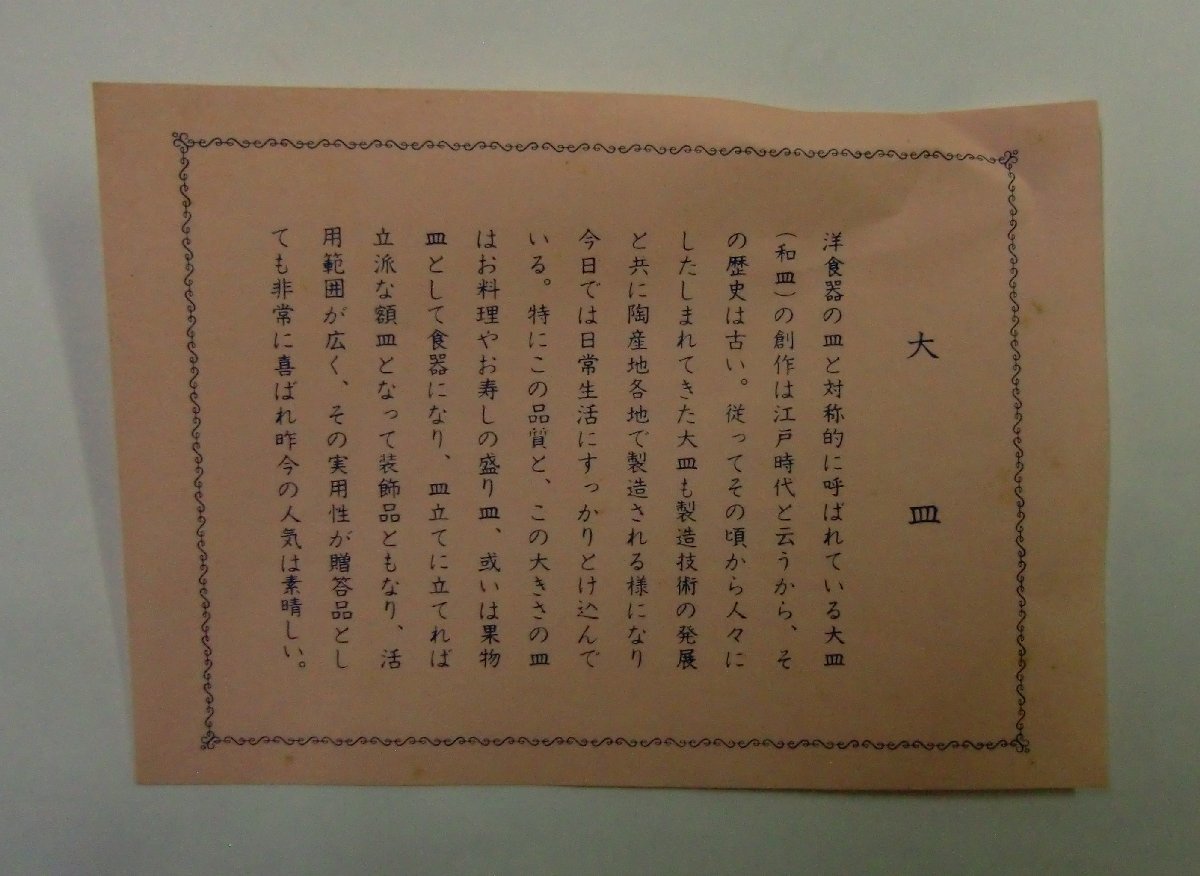 大皿
洋食器の皿と対称的に呼ばれている大皿
(和皿)の創作は江戸時代と云うから、そ
の歴史は古い。従ってその頃から人々に
したしまれてきた大皿も製造技術の発展
と共に陶産地各地で製造される様になり
今日では日常生活にすっかりとけ込んで
いる。特にこの品質と、この大きさの皿
はお料理やお寿しの盛り皿、或いは果物
皿として食器になり、皿立てに立てれば
立派な額皿となって装飾品ともなり、活
用範囲が広く、その実用性が贈答品とし
ても非常に喜ばれ昨今の人気は素晴しい。